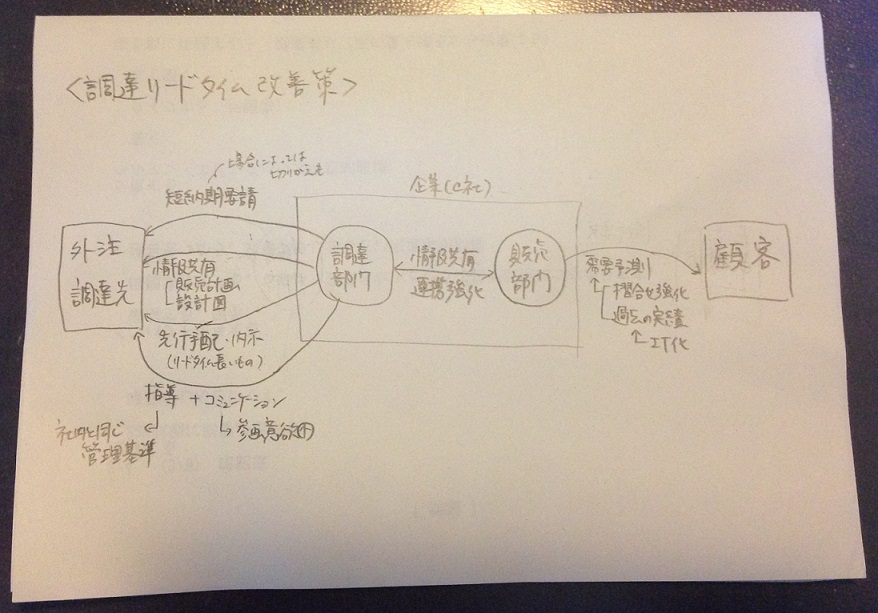 <調達リードタイム改善策>
場合によっては
切りかえも
短納期要請
企業(C社)
外注
調達先
情報共有
販売計画
設計図
調達
部門
情報共有
連携強化
販売
部門
需要予測
摺合せ強化
過去の実績
IT化
顧客
先行手配・内示
(リードタイム長いもの)
指導 + コミュニケーション
社内と同じ
管理基準
参画意欲